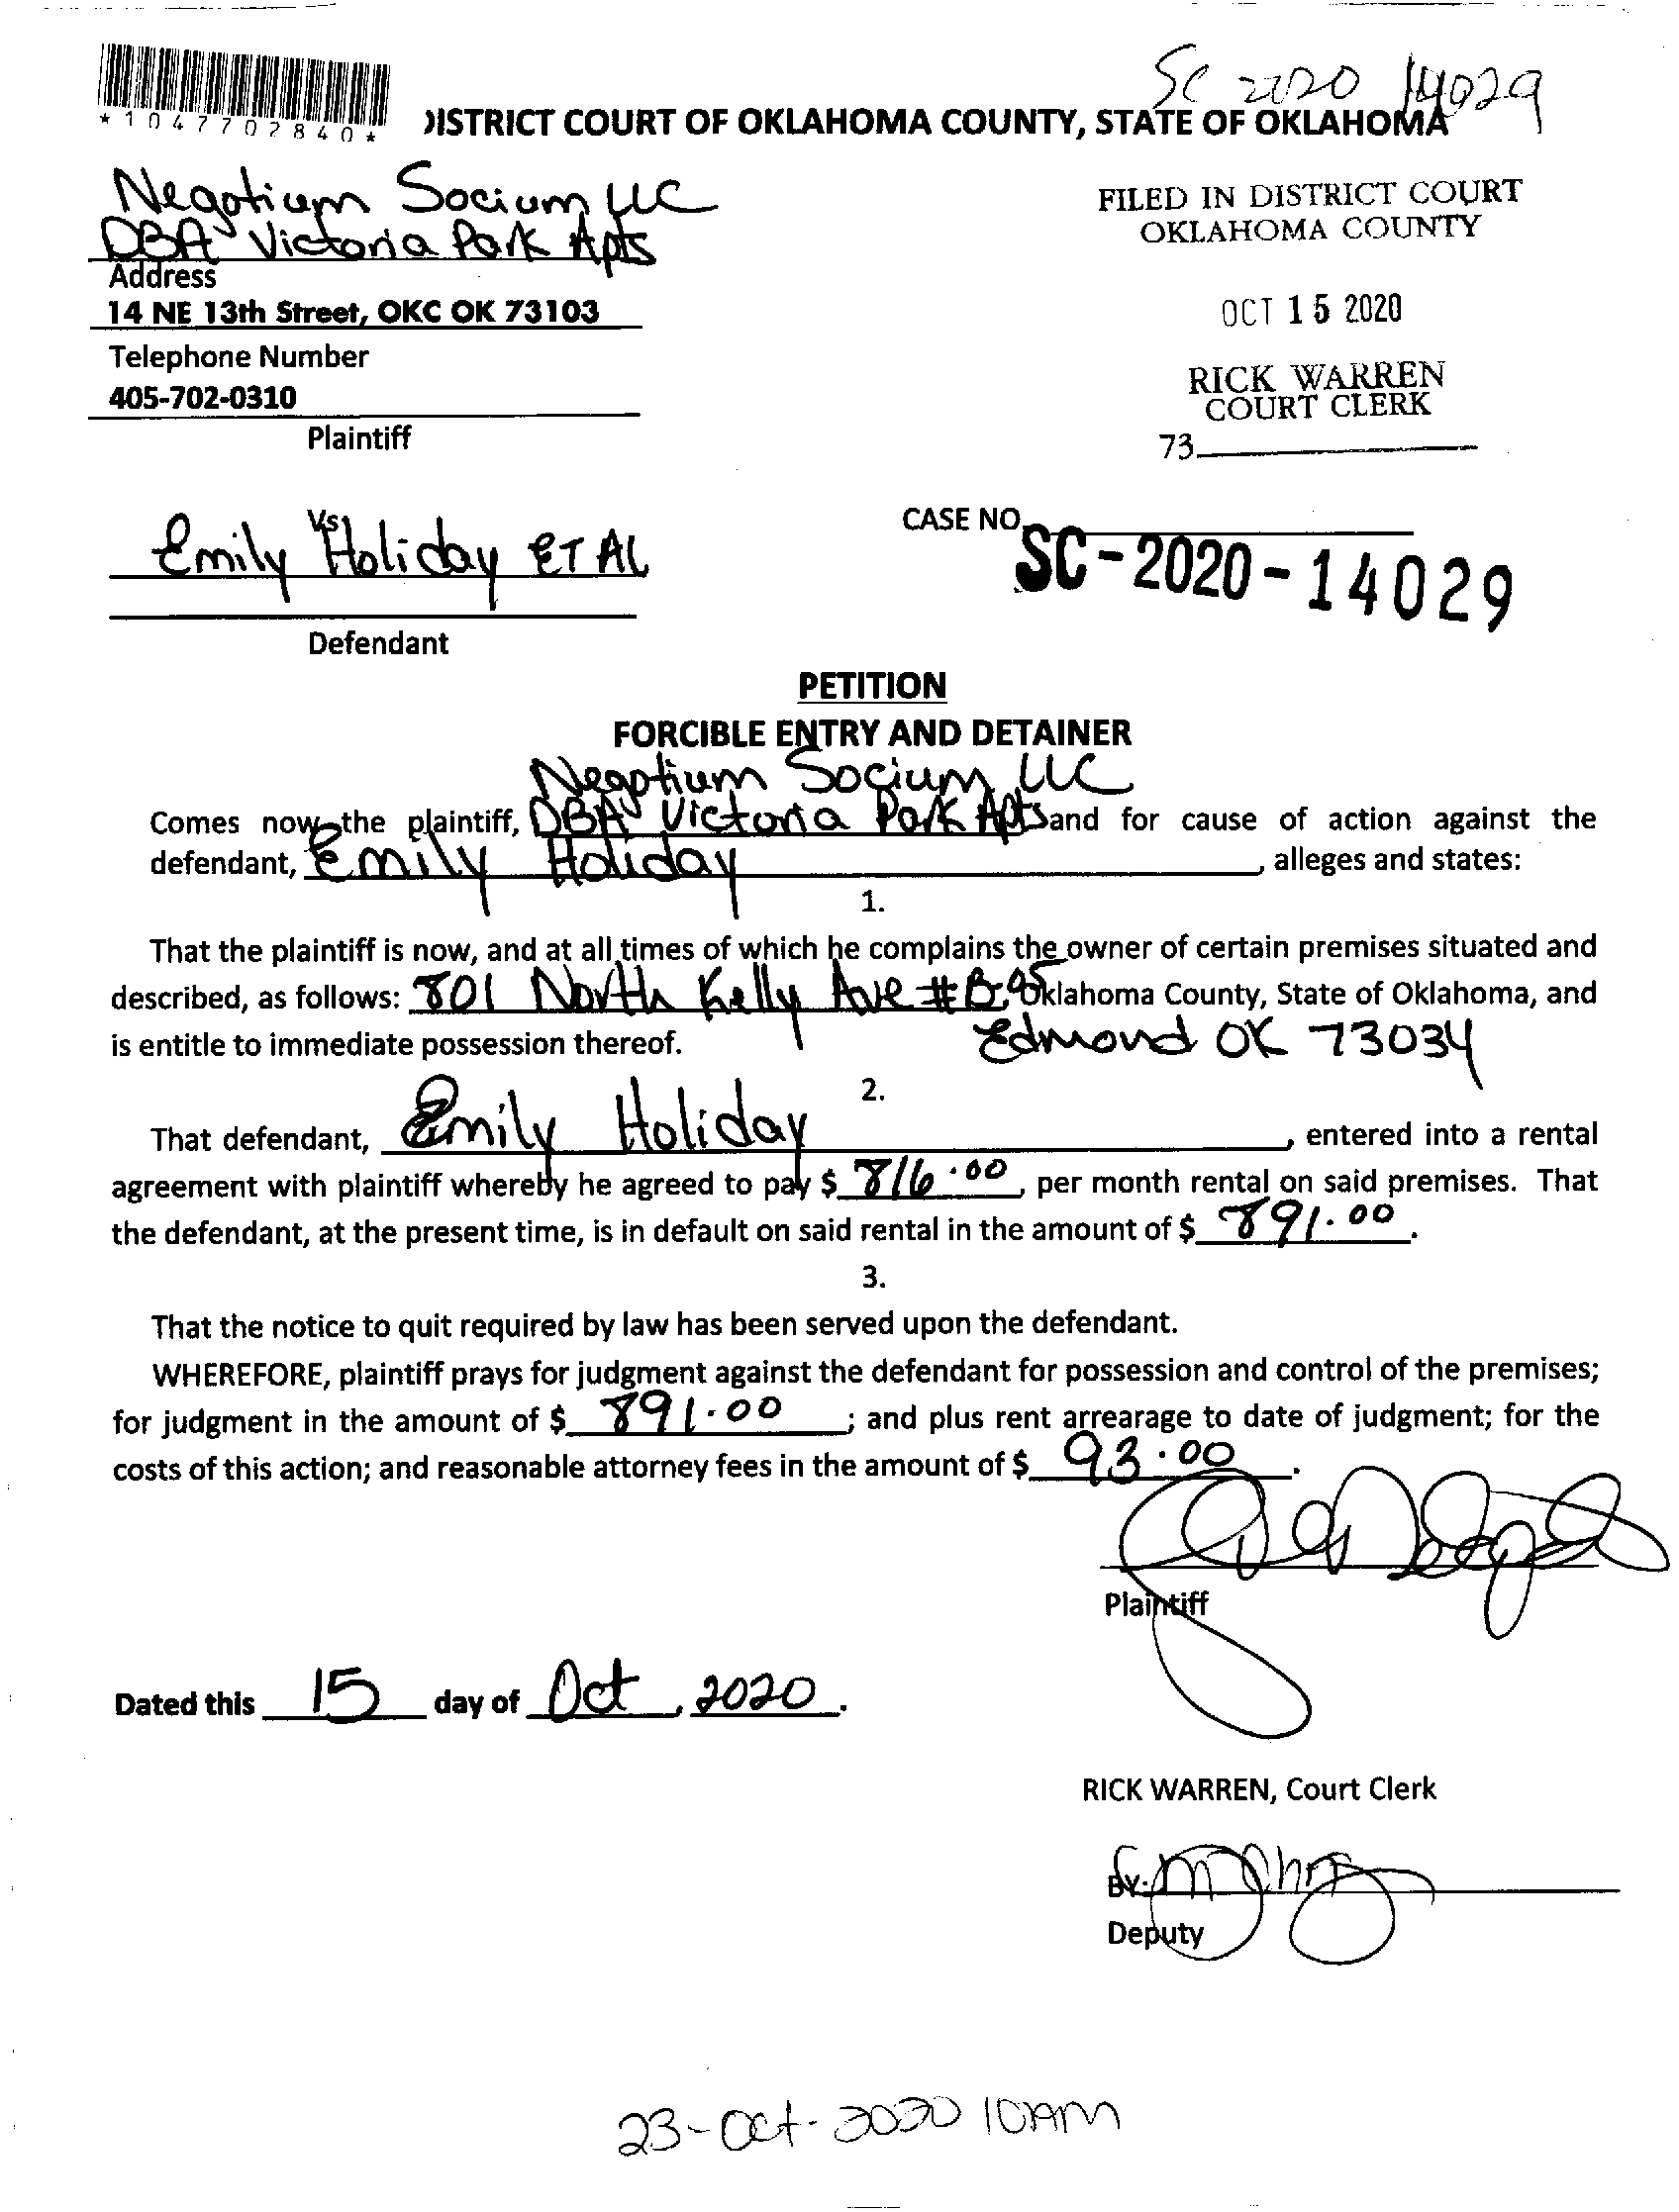 SC 2020 14029
*1047702840*
DISTRICT COURT OF OKLAHOMA COUNTY, STATE OF OKLAHOMA
Negotium Socium LLC
DBA Victoria Park Apts
Address
14 NE 13th Street, OKC OK 73103
Telephone Number
405-702-0310
Plaintiff
FILED IN DISTRICT COURT
OKLAHOMA COUNTY
OCT 15 2020
RICK WARREN
COURT CLERK
73
Vs
Emily Holiday ET AL
Defendant
CASE NO.
SC-2020-14029
PETITION
FORCIBLE ENTRY AND DETAINER
Negotium Socium LLC
Comes now the plaintiff, DBA Victoria Park Apts and for cause of action against the
defendant, Emily Holiday, alleges and states:
1.
That the plaintiff is now, and at all times of which he complains the owner of certain premises situated and
described, as follows: 801 North Kelly Ave # Oklahoma County, State of Oklahoma, and
is entitle to immediate possession thereof. Edmond OK 73034
2.
That defendant, Emily Holiday, entered into a rental
agreement with plaintiff whereby he agreed to pay $ 816.00, per month rental on said premises. That
the defendant, at the present time, is in default on said rental in the amount of $ 891.00.
3.
That the notice to quit required by law has been served upon the defendant.
WHEREFORE, plaintiff prays for judgment against the defendant for possession and control of the premises;
for judgment in the amount of $ 891.00; and plus rent arrearage to date of judgment; for the
costs of this action; and reasonable attorney fees in the amount of $ 93.00.
Plaintiff
Dated this 15 day of Oct, 2020.
RICK WARREN, Court Clerk
BY:
Deputy
23-Oct-2020 10AM